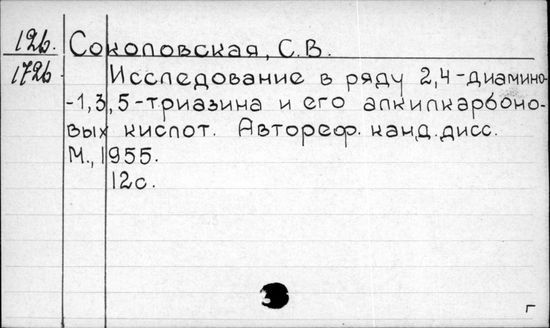 12б.
172б.
Соколовская, С.В.
Исследование в ряду 2,4-диамино-
-1,3,5-триазина и его алкилкарбоно-
вых кислот. Автореф. канд. дисс.
М., 1955.
12с.
г